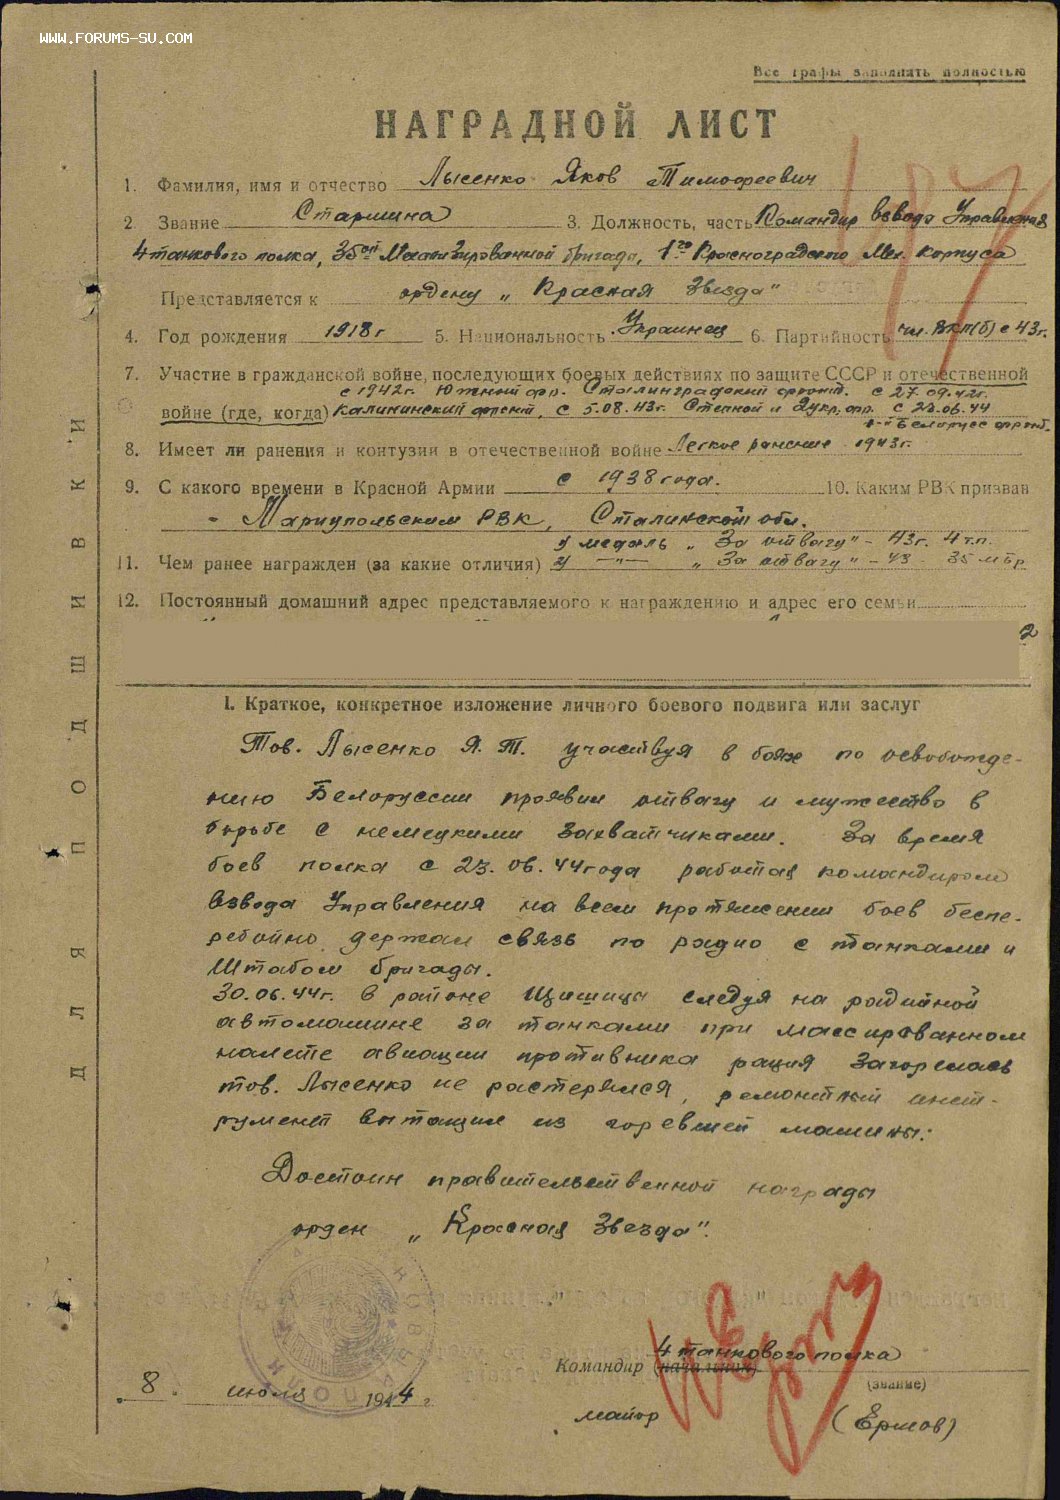 WWW.FORUMS-SU.COM
Все графы заполнять полностью
НАГРАДНОЙ ЛИСТ
1. Фамилия, имя и отчество Лысенко Яков Тимофеевич
2 Звание Старшина 3. Должность, часть Командир взвода Управления
4 танкового полка, 35ой Механизированной бригады, 1го Красноградского Мех. Корпуса
Представляется к ордену „Красная Звезда"
4. Год рождения 1918г 5. Национальность Украинец 6. Партийность чл. ВКП(б) с 43г.
7. Участие в гражданской войне, последующих боевых действиях по защите СССР и отечественной
с 1942г. Южный фр. Сталинградский фронт. с 27.09.42г.
войне (где, когда) Калининский фронт, с 5.08.43г. Степной и 2 укр. фр. с 23.06.44
1-й Белорус фронт.
8. Имеет ли ранения и контузии в отечественной войне Легкое ранение 1943г.
9. С какого времени в Красной Армии с 1938 года. 10. Каким РВК призван
- Мариупольским РВК, Сталинской обл.
1) медаль „За отвагу" - 43г. 4 т.п.
11. Чем ранее награжден (за какие отличия) 2) —"— „За отвагу" - 43 - 35 мбр
12. Постоянный домашний адрес представляемого к награждению и адрес его семьи
I. Краткое, конкретное изложение личного боевого подвига или заслуг
Тов. Лысенко Я. Т. участвуя в боях по освобожде-
нию Белоруссии проявил отвагу и мужество в
борьбе с немецкими захватчиками. За время
боев полка с 23.06.44 года работая командиром
взвода Управления на всем протяжении боев беспе-
ребойно держал связь по радио с танками и
Штабом бригады.
30.06.44г. в районе следуя на радийной
автомашине за танками при массированном
налете авиации противника рация загорелась
тов. Лысенко не растерялся, ремонтный инст-
румент вытащил из горевшей машины.
Достоин правительственной награды
орден „Красная Звезда".
4 танкового полка
Командир (начальник)
(звание)
8. июля 1944 г.
майор (Ершов)
ДЛЯ ПОДШИВКИ